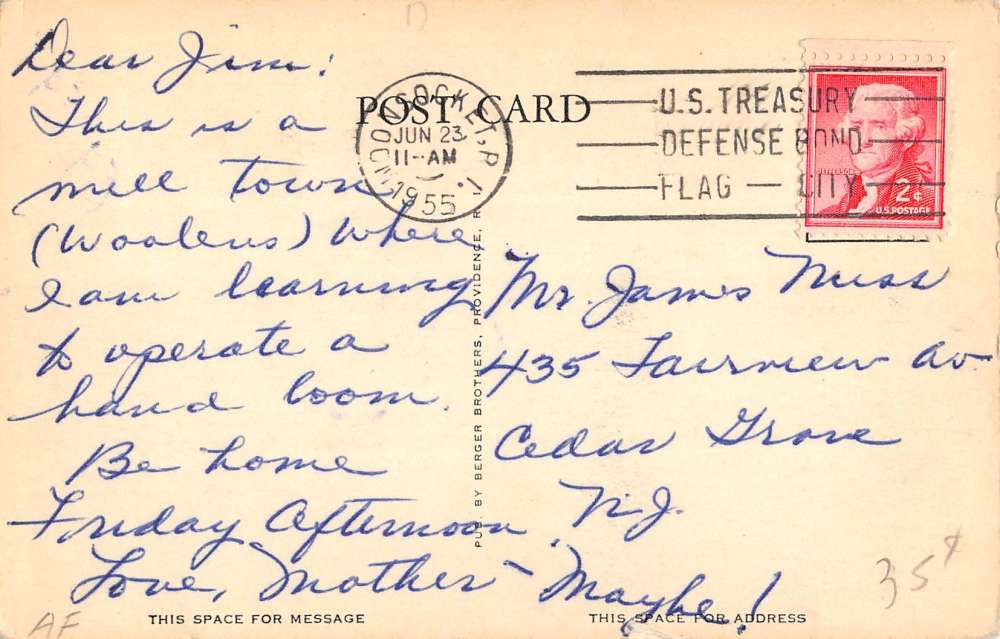 Dear Jim:
This is a
mill town
(Woolens) where
I am learning
to operate a
hand loom.
Be home
Friday Afternoon
Love, Mother - Maybe!
POST CARD
WOONSOCKET, R.I.
JUN 23
11-AM
1955
U.S. TREASURY
DEFENSE BOND
FLAG — CITY
JEFFERSON
2¢
U.S. POSTAGE
Mr. James Muss
435 Fairview Av
Cedar Grove
N.J.
PUB. BY BERGER BROTHERS, PROVIDENCE, R.
THIS SPACE FOR MESSAGE
THIS SPACE FOR ADDRESS
35¢
AF
D